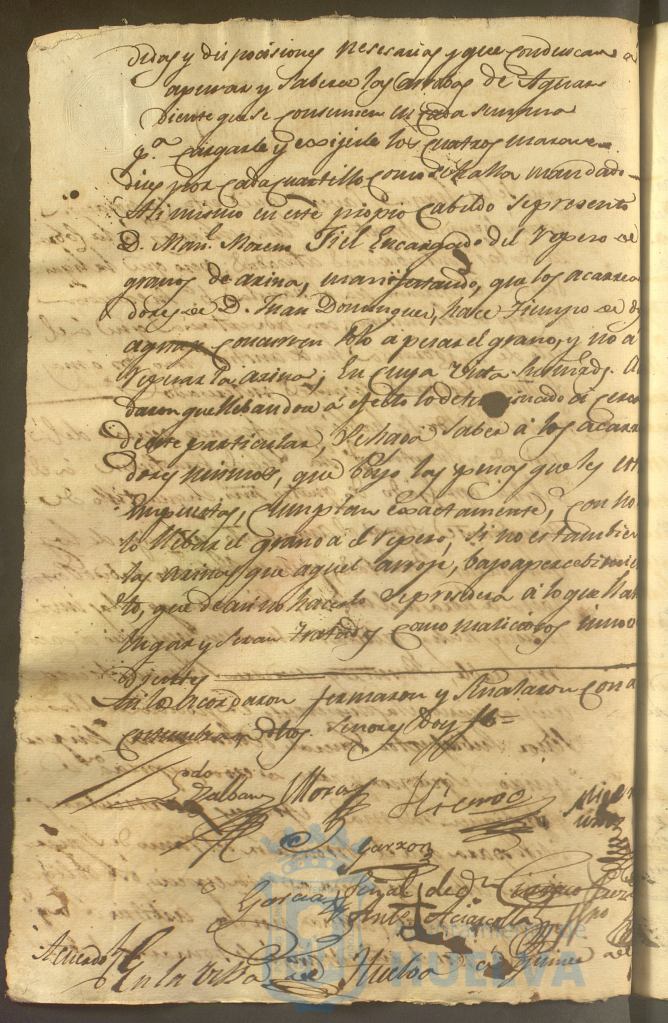 didas y disposiciones nesesarias y que conduscan a
apurar y saber las arrobas de Aguar
diente que se consumen en cada semana
p.ª cargarle y exijirle los quatros marave
dises por cada quartillo como se halla mandado
Asi mismo en este propio Cabildo se presento
D. Man.l Moreno Fiel Encargado del repeso de
granos de arina, manifestando, que los acarrea
dores de D. Juan Dominguez, hace tiempo de
concurren solo a pesar el grano, y no a
repesar la arina; En cuya vista sus mrds. A
daron que llebandose a efecto lo determinado a cerca
de este particular, se haga saber a los acarr
dores mismos, que bajo las penas que les est
impuestas, cumplan exactamente, con no
lo llebar el grano a el repeso, si no es tambien
las arinas que aquel arroje, bajo apercebimie
to, que de asi no hacerlo se prosedera a lo que ha
lugar y seran tratados como maliciosos inobe
dientes
Asi lo acordaron firmaron y señalaron con a
costumbran dhos. Señores Doy fe =
Mora
Garzon
Garcia Señal de d.n
Acuerdo
En la Villa de Huelva a
HUELVA